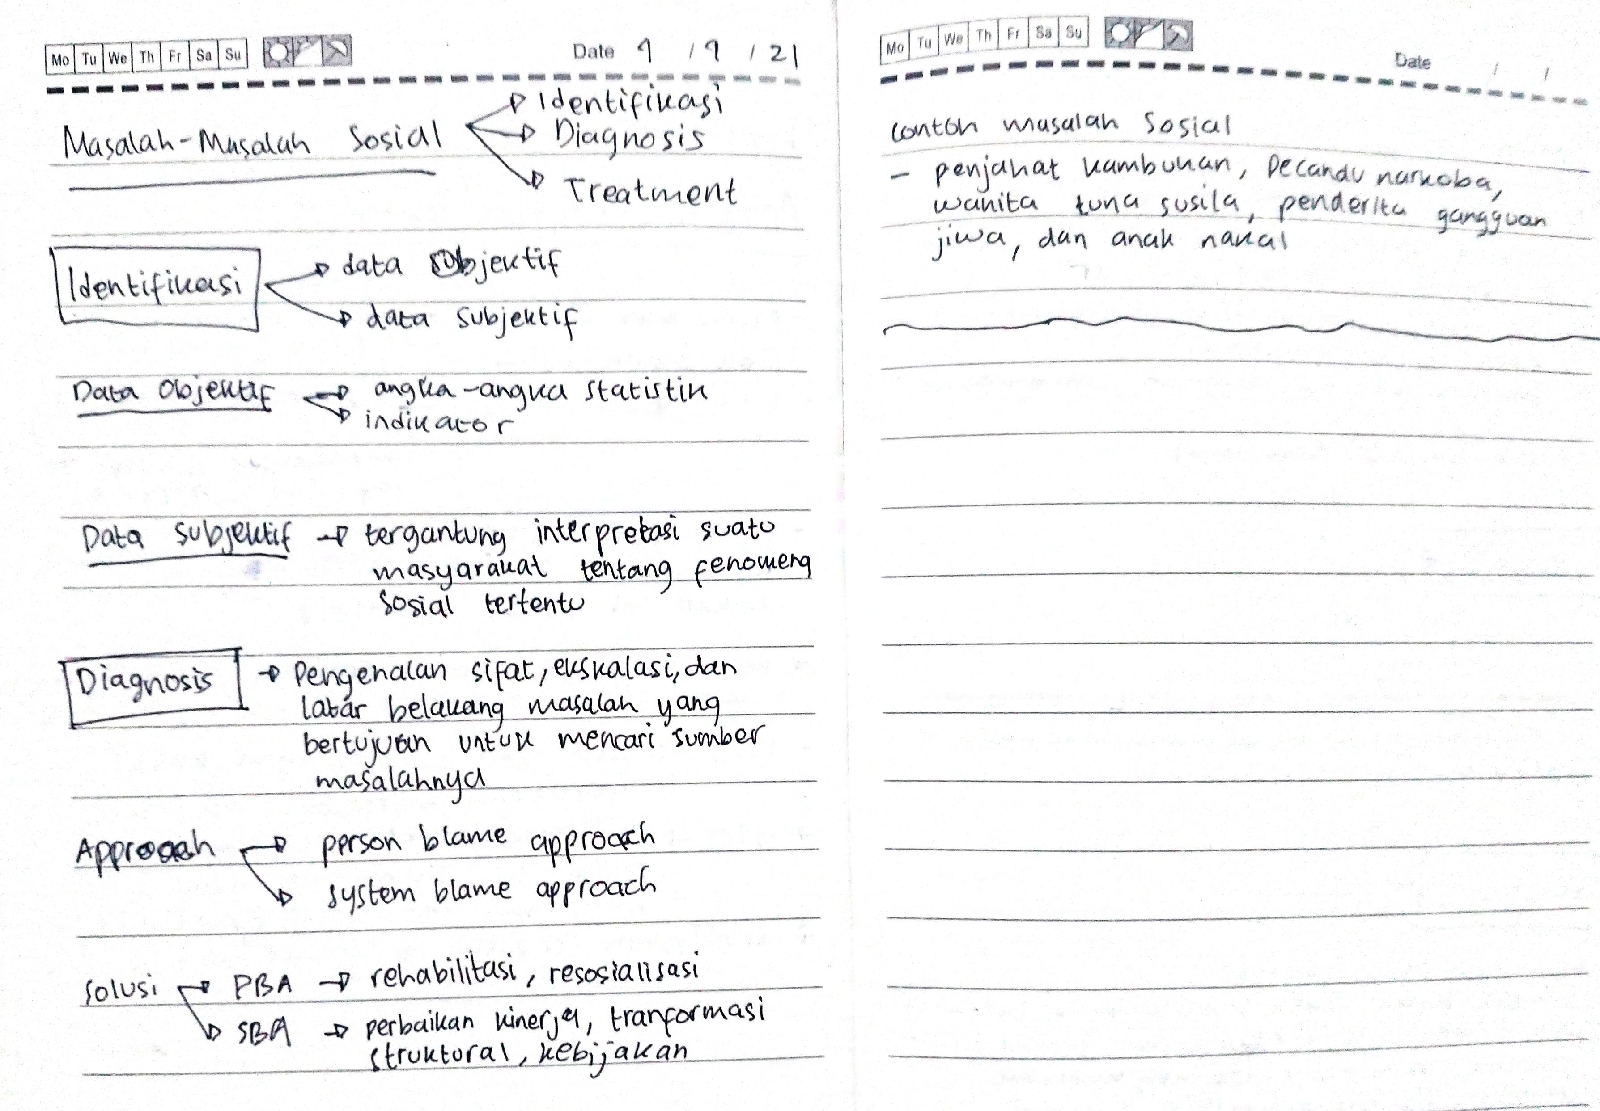 Mo Tu We Th Fr Sa Su
Date 9 / 9 / 21
Masalah-Masalah Sosial
Identifikasi
Diagnosis
Treatment
Identifikasi
data Objektif
data subjektif
Data Objektif
angka-angka statistik
indikator
Data subjektif → tergantung interpretasi suatu
masyarakat tentang fenomena
sosial tertentu
Diagnosis → Pengenalan sifat, ekskalasi, dan
latar belakang masalah yang
bertujuan untuk mencari sumber
masalahnya
Approach
person blame approach
system blame approach
Solusi
PBA → rehabilitasi, resosialisasi
SBA → perbaikan kinerja, tranformasi
struktural, kebijakan
Mo Tu We Th Fr Sa Su
Date / /
contoh masalah sosial
- penjahat kambuhan, pecandu narkoba,
wanita tuna susila, penderita gangguan
jiwa, dan anak nakal